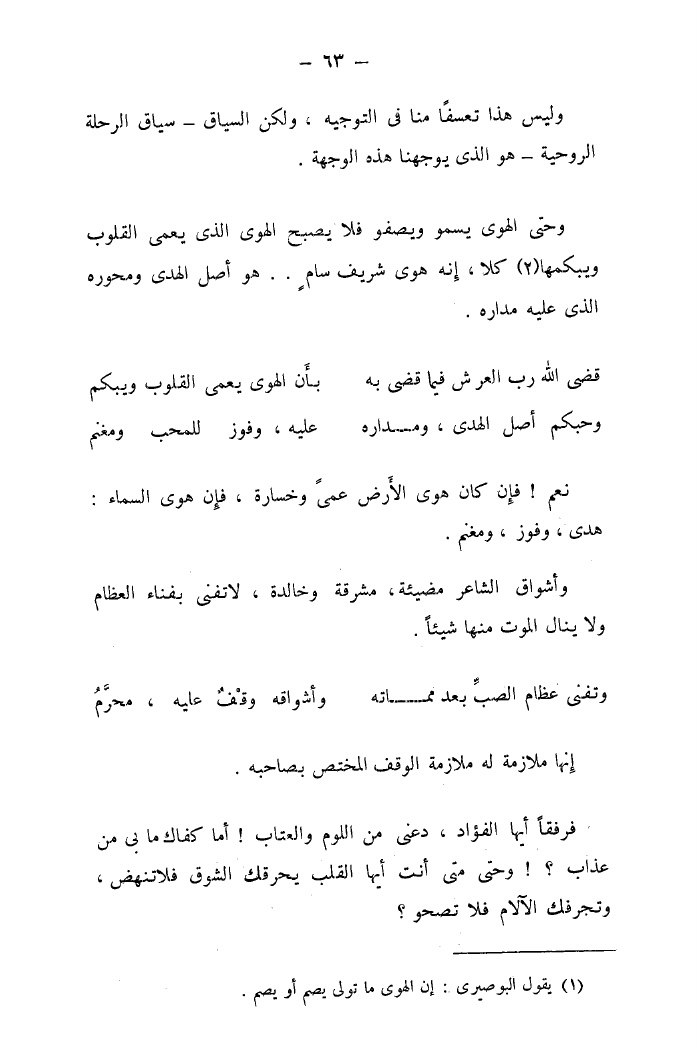 – ٦٣ –
وليس هذا تعسفًا منا فى التوجيه ، ولكن السياق – سياق الرحلة
الروحية – هو الذى يوجهنا هذه الوجهة .
وحتى الهوى يسمو ويصفو فلا يصبح الهوى الذى يعمى القلوب
ويبكمها(٢) كلا ، إنه هوى شريف سامٍ . . هو أصل الهدى ومحوره
الذى عليه مداره .
قضى الله رب العرش فيما قضى به بأن الهوى يعمى القلوب ويبكم
وحبكم أصل الهدى ، ومـــداره عليه ، وفوز للمحب ومغنم
نعم ! فإن كان هوى الأرض عمىً وخسارة ، فإن هوى السماء :
هدى ، وفوز ، ومغنم .
وأشواق الشاعر مضيئة ، مشرقة وخالدة ، لاتفنى بفناء العظام
ولا ينال الموت منها شيئاً .
وتفنى عظام الصبِّ بعد ممــــاته وأشواقه وقْفٌ عليه ، محرَّمُ
إنها ملازمة له ملازمة الوقف المختص بصاحبه .
فرفقاً أيها الفؤاد ، دعنى من اللوم والعتاب ! أما كفاك ما بى من
عذاب ؟ ! وحتى متى أنت أيها القلب يحرقك الشوق فلاتنهض ،
وتجرفك الآلام فلا تصحو ؟
(١) يقول البوصيرى : إن الهوى ما تولى يصم أو يصم .